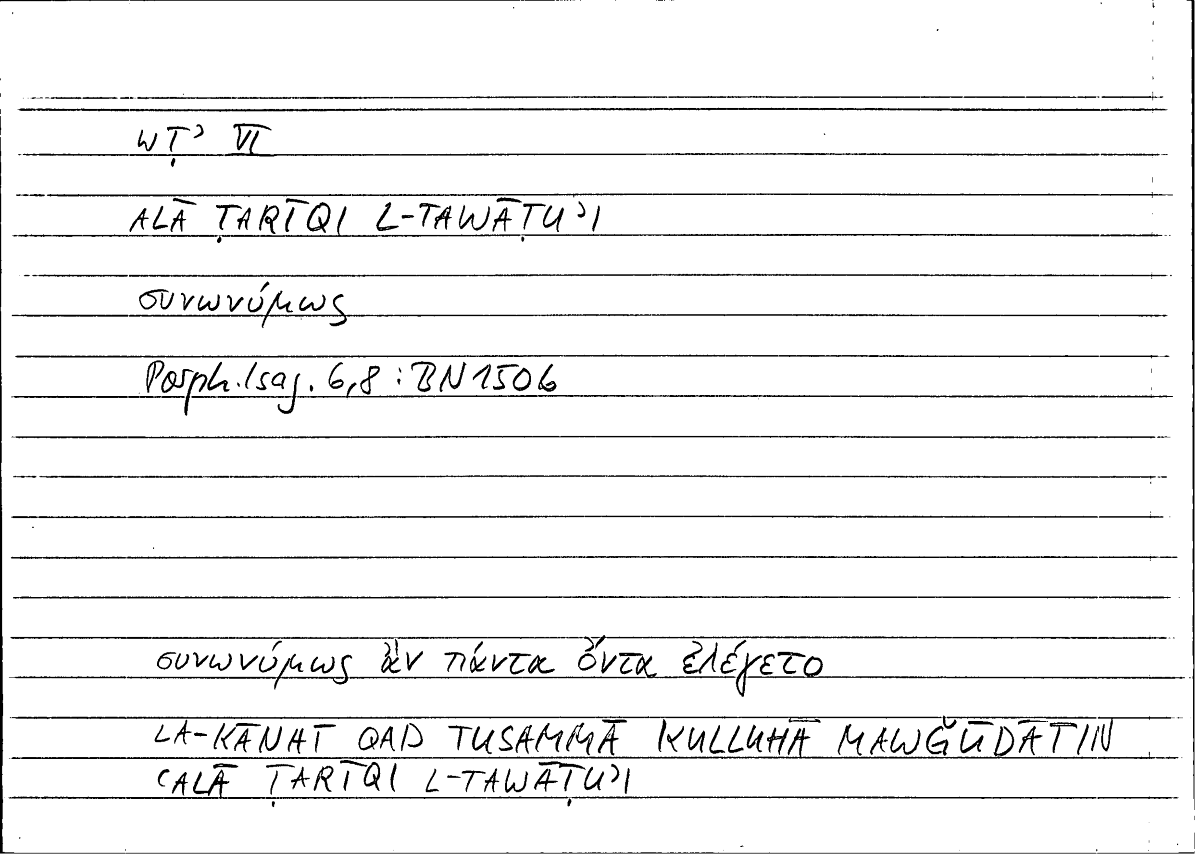 WṬʾ VI
ALĀ ṬARĪQI L-TAWĀṬUʾI
συνωνύμως
Porph. Isag. 6,8 : BN 1506
συνωνύμως ἂν πάντα ὄντα ἐλέγετο
LA-KĀNAT QAD TUSAMMĀ KULLUHĀ MAWǦŪDĀTIN
ʿALĀ ṬARĪQI L-TAWĀṬUʾI